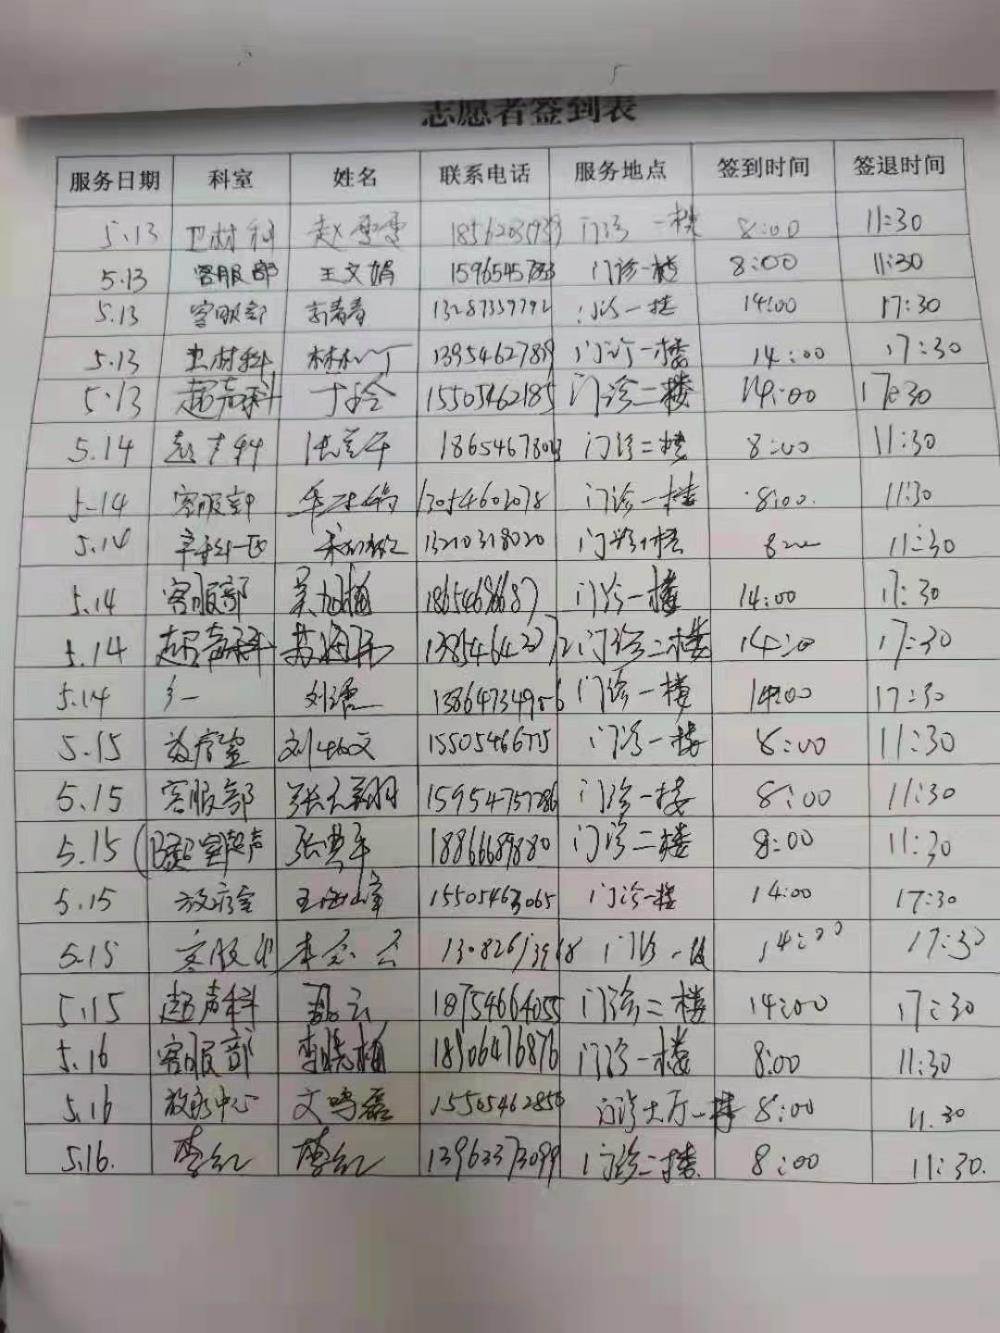 志愿者签到表
服务日期 科室 姓名 联系电话 服务地点 签到时间 签退时间
5.13 卫材科 赵雪雪 门诊一楼 8:00 11:30
5.13 客服部 王文娟 门诊一楼 8:00 11:30
5.13 客服部 13287359792 门诊一楼 14:00 17:30
5.13 卫材科 13954627819 门诊一楼 14:00 17:30
5.13 超声科 15505462185 门诊二楼 14:00 17:30
5.14 超声科 门诊二楼 8:00 11:30
5-14 客服部 13054603078 门诊一楼 8:00. 11:30
5.14 13210318020 门诊一楼 11:30
5.14 客服部 吴旭梅 18654686687 门诊一楼 14:00 17:30
5.14 超声科 13854643772 门诊二楼 14:00 17:30
5.14 13864734956 门诊一楼 14:00 17:30
5.15 放疗室 15505466775 门诊一楼 8:00 11:30
5.15 客服部 15954757286 门诊一楼 8:00 11:30
5.15 超声 18866689880 门诊二楼 8:00 11:30
5.15 放疗室 王海峰 15505463065 门诊一楼 14:00 17:30
5.15 客服部 门诊一楼 14:00 17:30
5.15 超声科 18754664055 门诊二楼 14:00 17:30
5.16 客服部 李晓梅 18906476876 门诊一楼 8:00 11:30
5.16 放疗中心 文鸣磊 15505462850 门诊大厅一楼 8:00 11.30
5.16. 李红 李红 13963373099 门诊二楼 8:00 11:30.